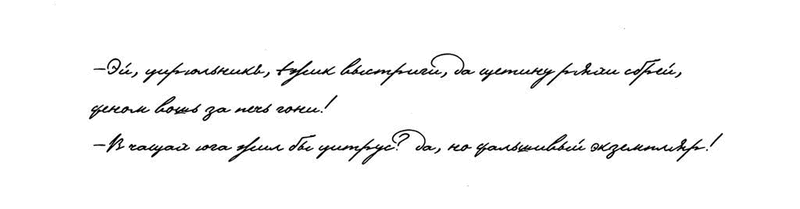 –Эй, цирюльникъ, ёжик выстриги, да щетину ряхи сбрей,
феном вошь за печь гони!
–В чащах юга жил бы цитрус? да, но фальшивый экземпляр!